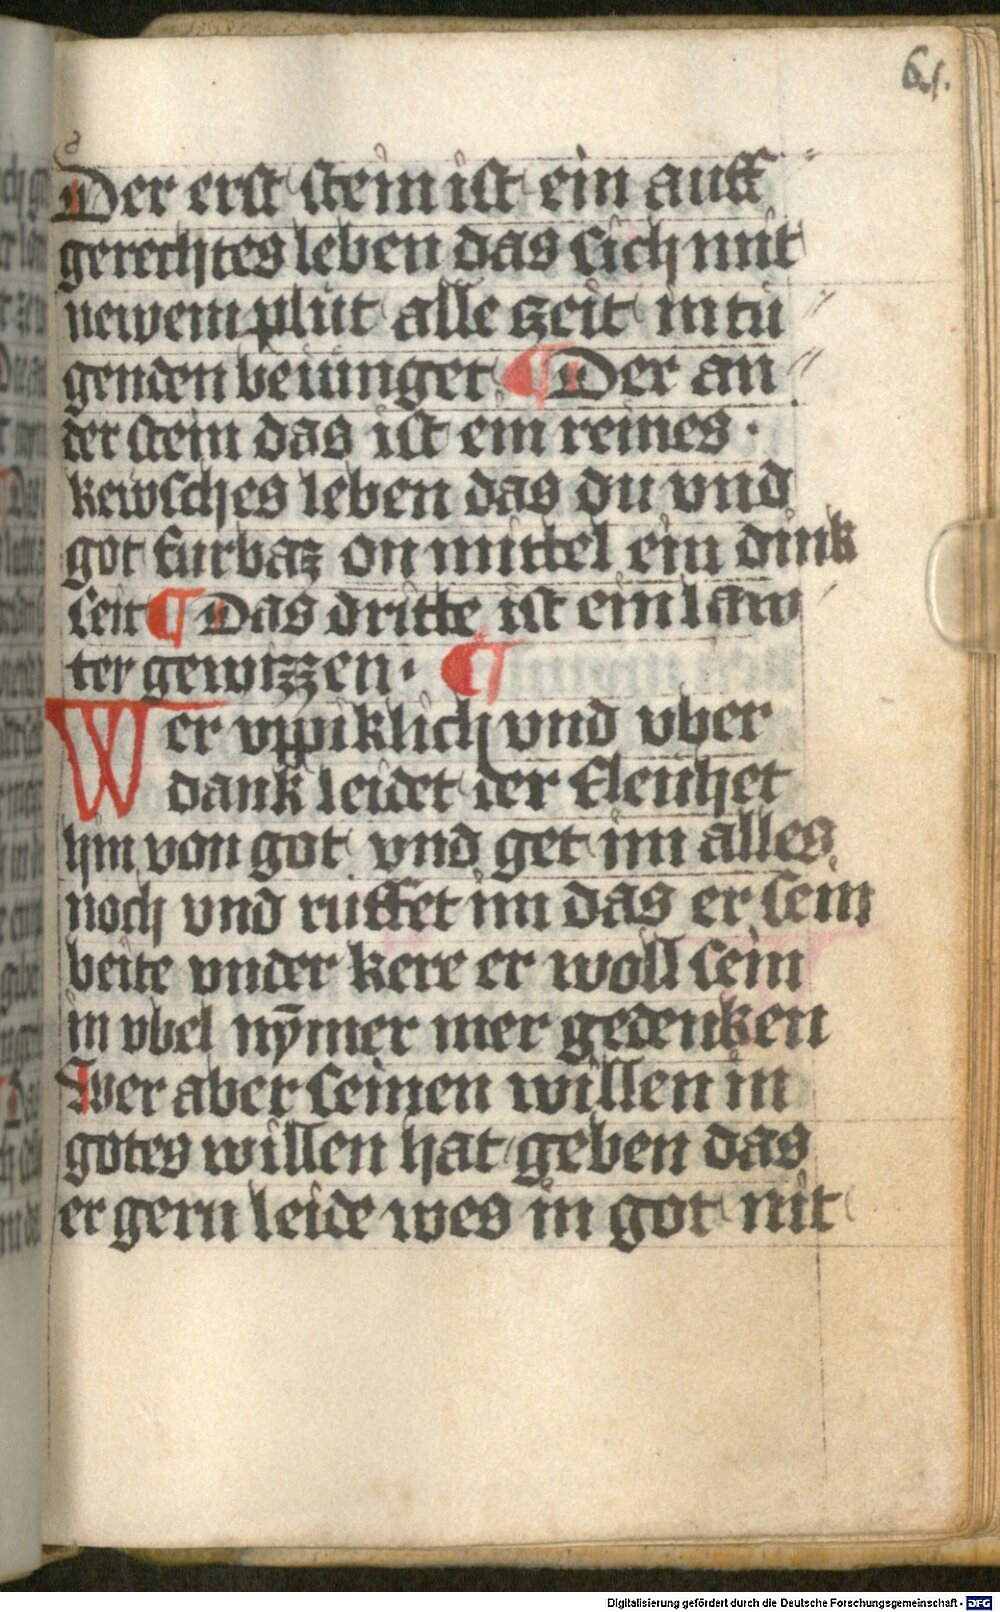 61.
Der erst stein ist ein auff
gerechtes leben das sich mit
newem plut alle zeit in tu
genden beiunget ¶ Der an
der stein das ist ein reines ·
kewsches leben das du vnd
got furbaz on mittel ein dink
seit ¶ Das dritte ist ein law
ter gewizzen · ¶
Wer vppiklich vnd vber
dank leidet der fleuhet
hin von got vnd get im alles
noch vnd ruffet im das er sein
beite vnd er kere er woll sein
in vbel nȳmer mer gedenken
Wer aber seinen willen in
gotes willen hat geben das
er gern leide wes in got nit
Digitalisierung gefördert durch die Deutsche Forschungsgemeinschaft - DFG